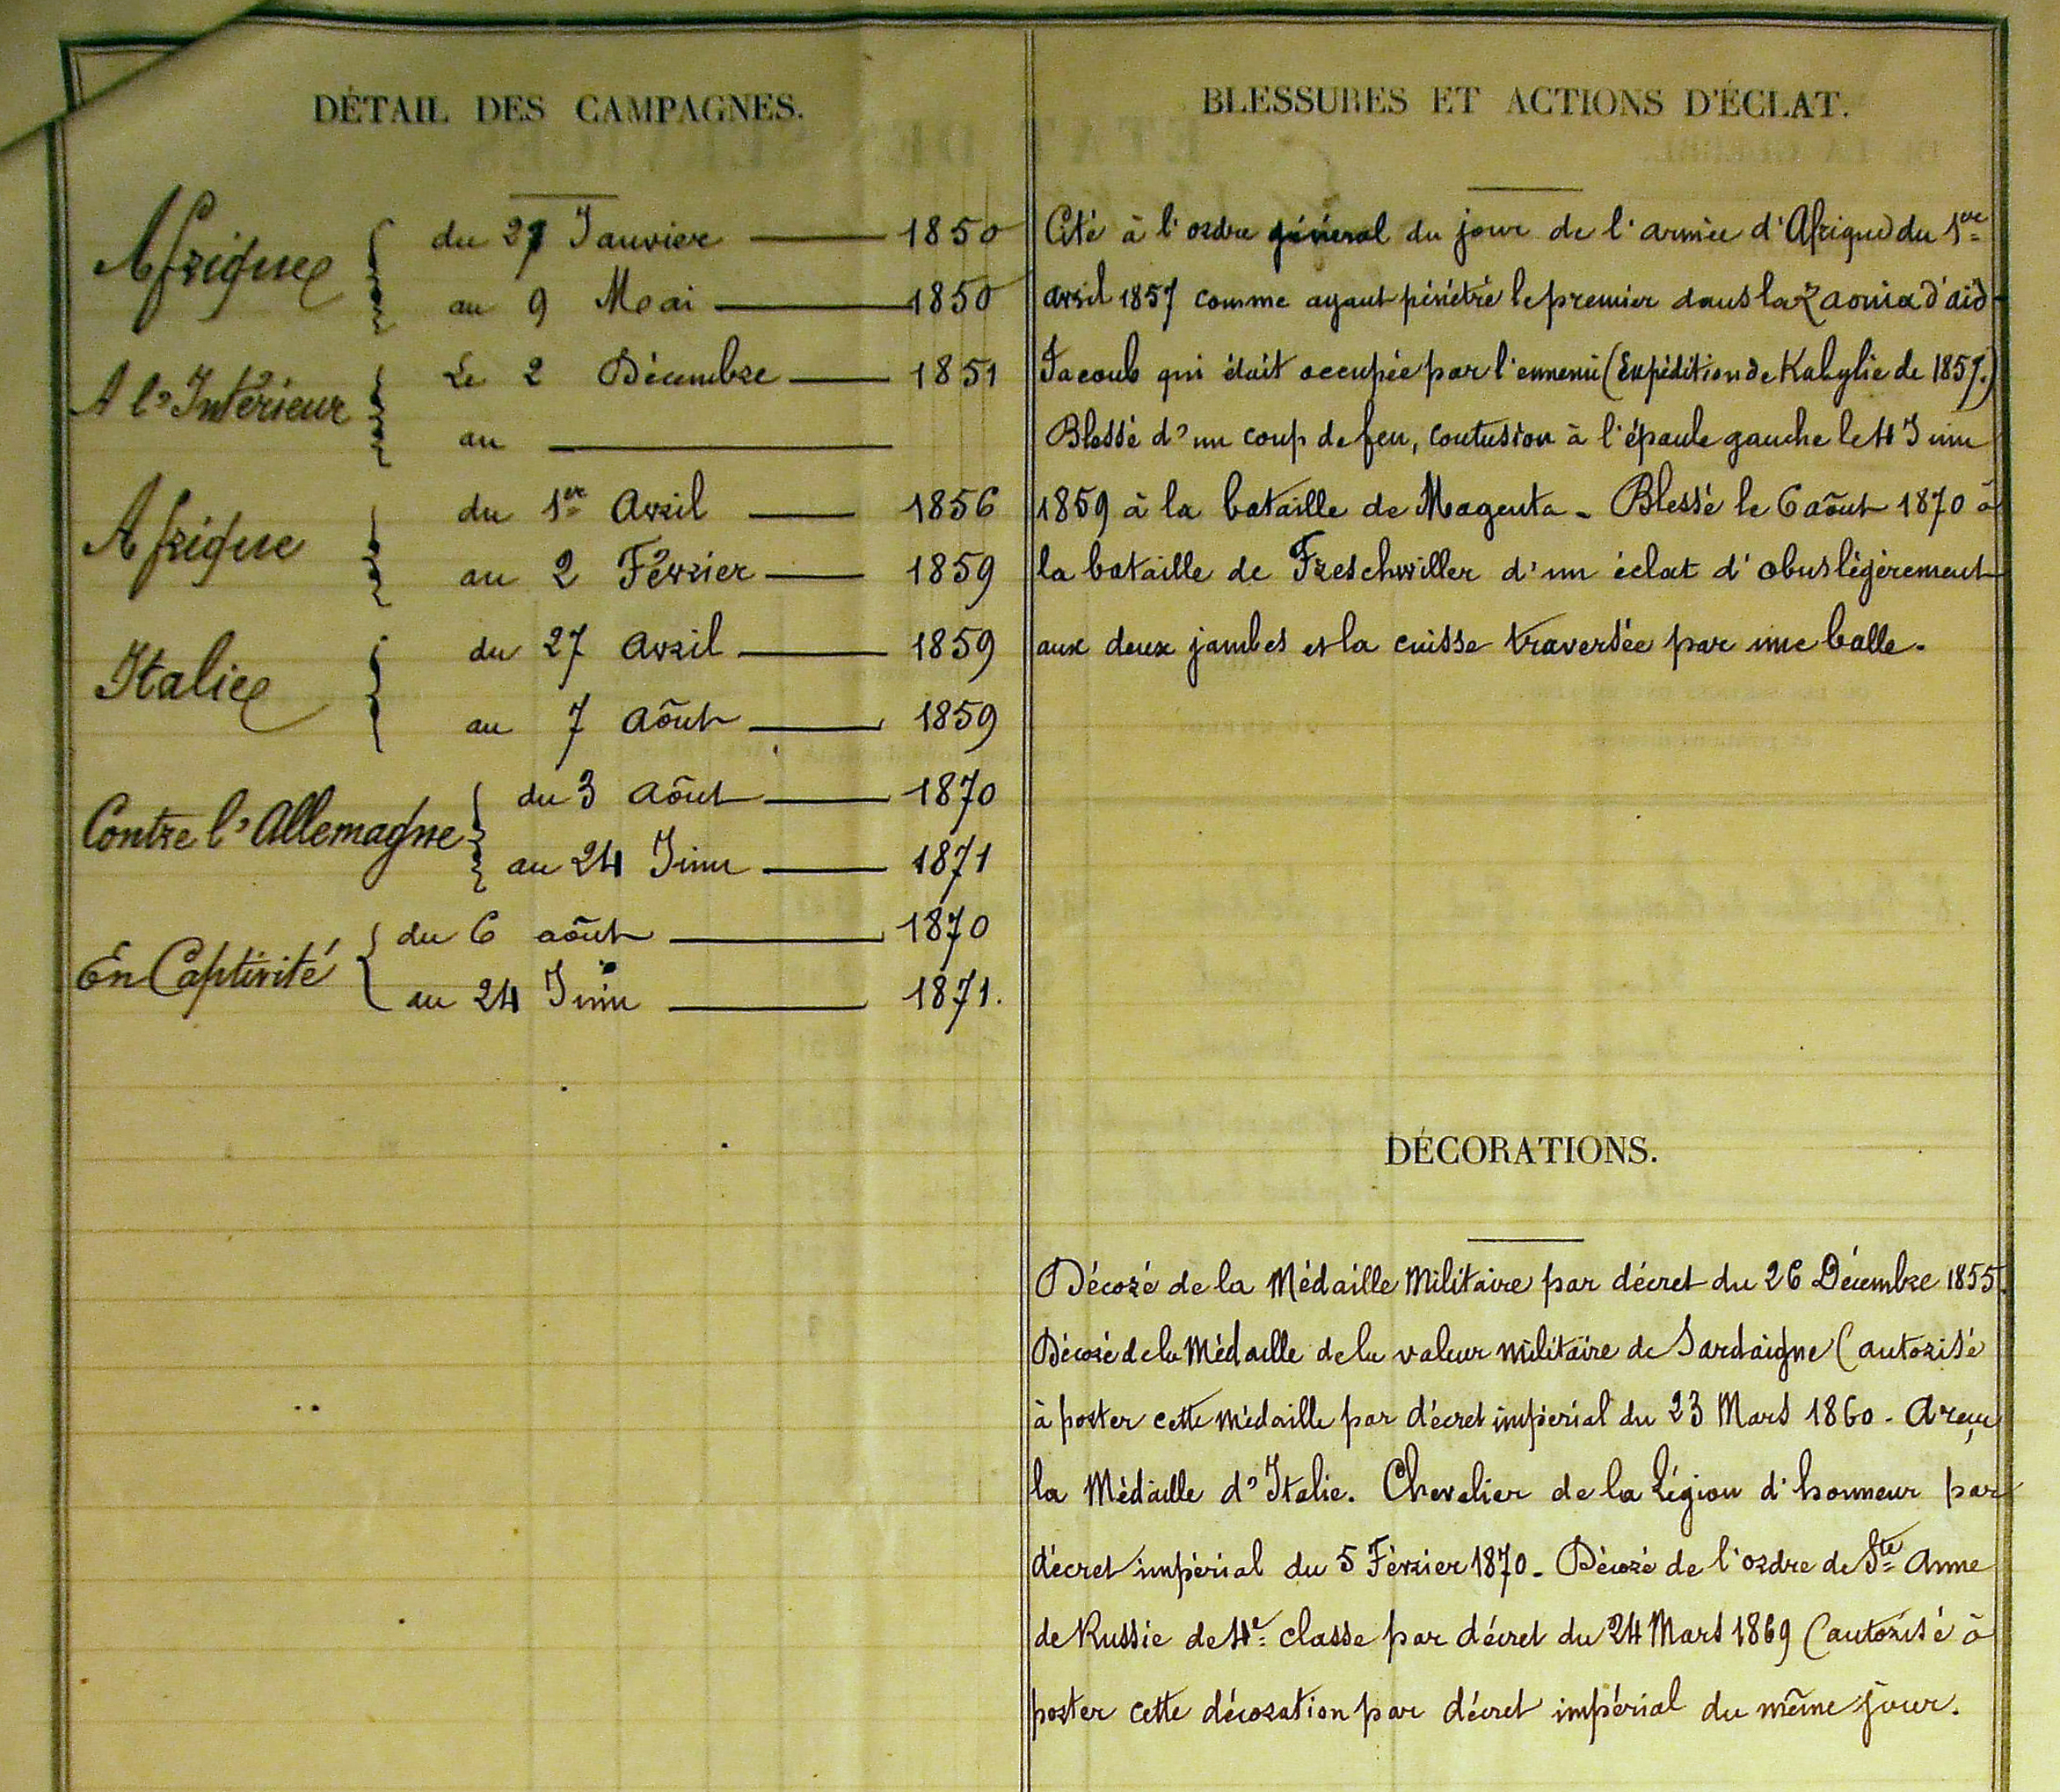 DÉTAIL DES CAMPAGNES.
Afrique
du 27 Janvier 1850
au 9 Mai 1850
A l'Intérieur
Le 2 Décembre 1851
au
Afrique
du 1er Avril 1856
au 2 Février 1859
Italie
du 27 Avril 1859
au 7 Aôut 1859
Contre l'Allemagne
du 3 Aôut 1870
au 24 Juin 1871
En Captivité
du 6 aôut 1870
au 24 Juin 1871.
BLESSURES ET ACTIONS D'ÉCLAT.
Cité à l'ordre général du jour de l'armée d'Afrique du 1er
avril 1857 comme ayant pénétré le premier dans la Zaouia d'aid
Jacoub qui était occupée par l'ennemi (Expédition de Kabylie de 1857.)
Blessé d'un coup de feu, contusion à l'épaule gauche le 4 Juin
1859 à la bataille de Magenta - Blessé le 6 aôut 1870 à
la bataille de Freschwiller d'un éclat d'obus légèrement
aux deux jambes et la cuisse traversée par une balle.
DÉCORATIONS.
Décoré de la Médaille Militaire par décret du 26 Décembre 1855.
Décoré de la Médaille de la valeur militaire de Sardaigne (autorisé
à porter cette médaille par décret impérial du 23 Mars 1860 - A reçu
la Médaille d'Italie. Chevalier de la Légion d'honneur par
décret impérial du 5 Février 1870 - Décoré de l'ordre de Ste Anne
de Russie de 4e classe par décret du 24 Mars 1869 (autorisé à
porter cette décoration par décret impérial du même jour.